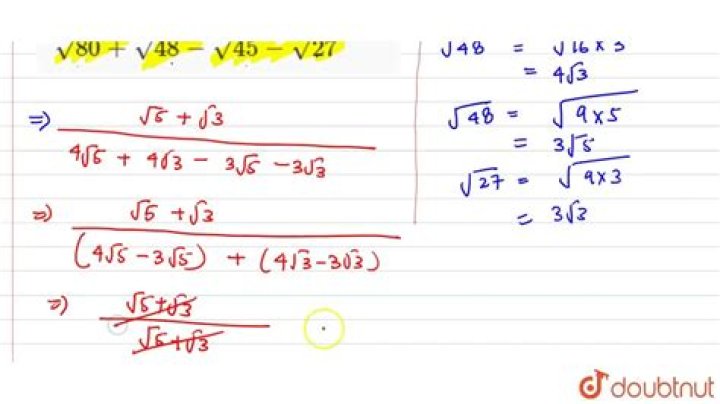 √80 + √48 − √45 − √27
⇒ (√5 + √3) / (4√5 + 4√3 − 3√5 − 3√3)
⇒ (√5 + √3) / ((4√5 − 3√5) + (4√3 − 3√3))
⇒ (√5 + √3) / (√5 + √3)
√48 = √16 × 3
= 4√3
√48 = √9 × 5
= 3√5
√27 = √9 × 3
= 3√3
doubtnut